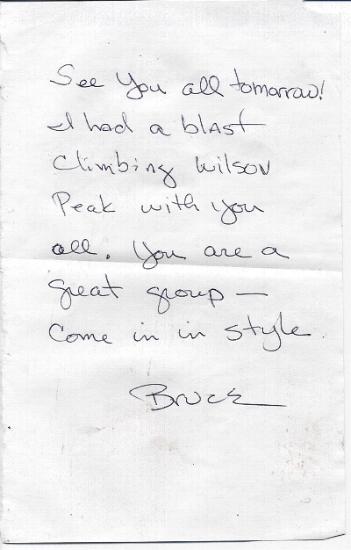 See You all tomorrow!
I had a blast
Climbing Wilson
Peak with you
all. You are a
great group —
Come in in style.
Bruce